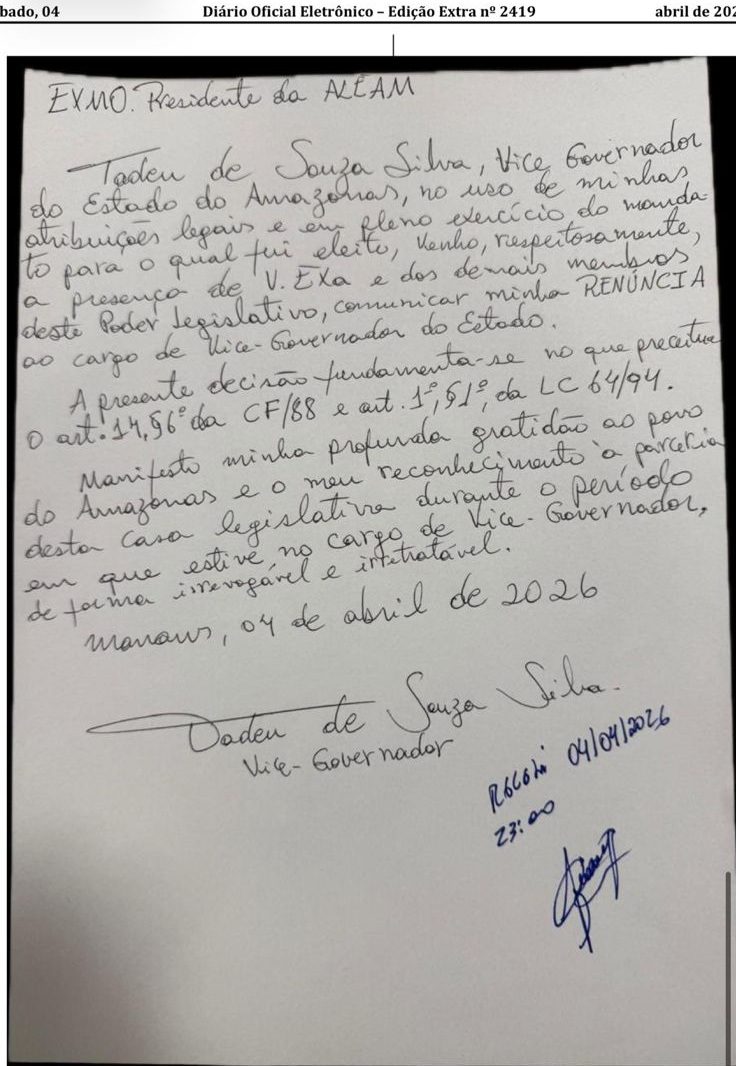 bado, 04 Diário Oficial Eletrônico – Edição Extra nº 2419 abril de 202
EXMO. Presidente da ALEAM
Tadeu de Souza Silva, Vice Governador
do Estado do Amazonas, no uso de minhas
atribuições legais e em pleno exercício do manda-
to para o qual fui eleito, venho, respeitosamente,
a presença de V. EXa e dos demais membros
deste Poder Legislativo, comunicar minha RENÚNCIA
ao cargo de Vice-Governador do Estado.
A presente decisão fundamenta-se no que preceitua
o art. 14, §6º da CF/88 e art. 1º, §1º, da LC 64/94.
Manifesto minha profunda gratidão ao povo
do Amazonas e o meu reconhecimento à parceria
desta Casa legislativa durante o período
em que estive, no cargo de Vice-Governador,
de forma irrevogável e irretratável.
Manaus, 04 de abril de 2026
Tadeu de Souza Silva.
Vice-Governador
Recebi 04/04/2026
23:00